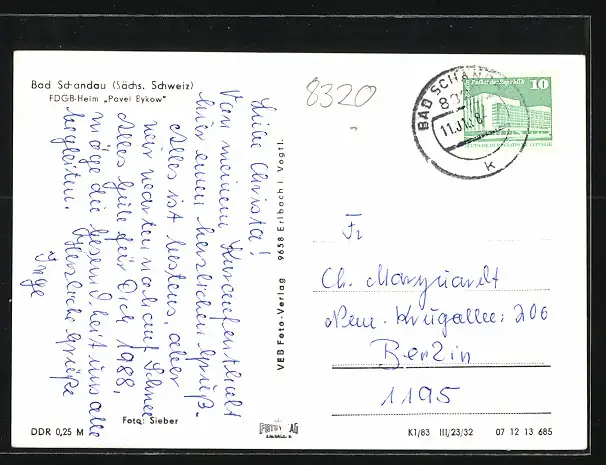 Bad Schandau (Sächs. Schweiz)
FDGB-Heim „Pavel Bykow“
8320
Liebe Christa!
Von meinem Kuraufenthalt
hier einen herzlichen Gruß.
Alles ist bestens, aber
wir warten noch auf Schnee
Alles Gute für Dich 1988,
möge die Gesundheit uns alle
begleiten. Herzliche Grüße
Inge
VEB Foto-Verlag 9658 Erlbach i. Vogtl.
BAD SCHAN
11.JAN.8
K
Palast der Republik
10
DEUTSCHE DEMOKRATISCHE REPUBLIK
Fr
Ch. Marquardt
Neue Krugallee: 206
Berlin
1195
Foto: Sieber
DDR 0,25 M
K1/83 III/23/32 07 12 13 685